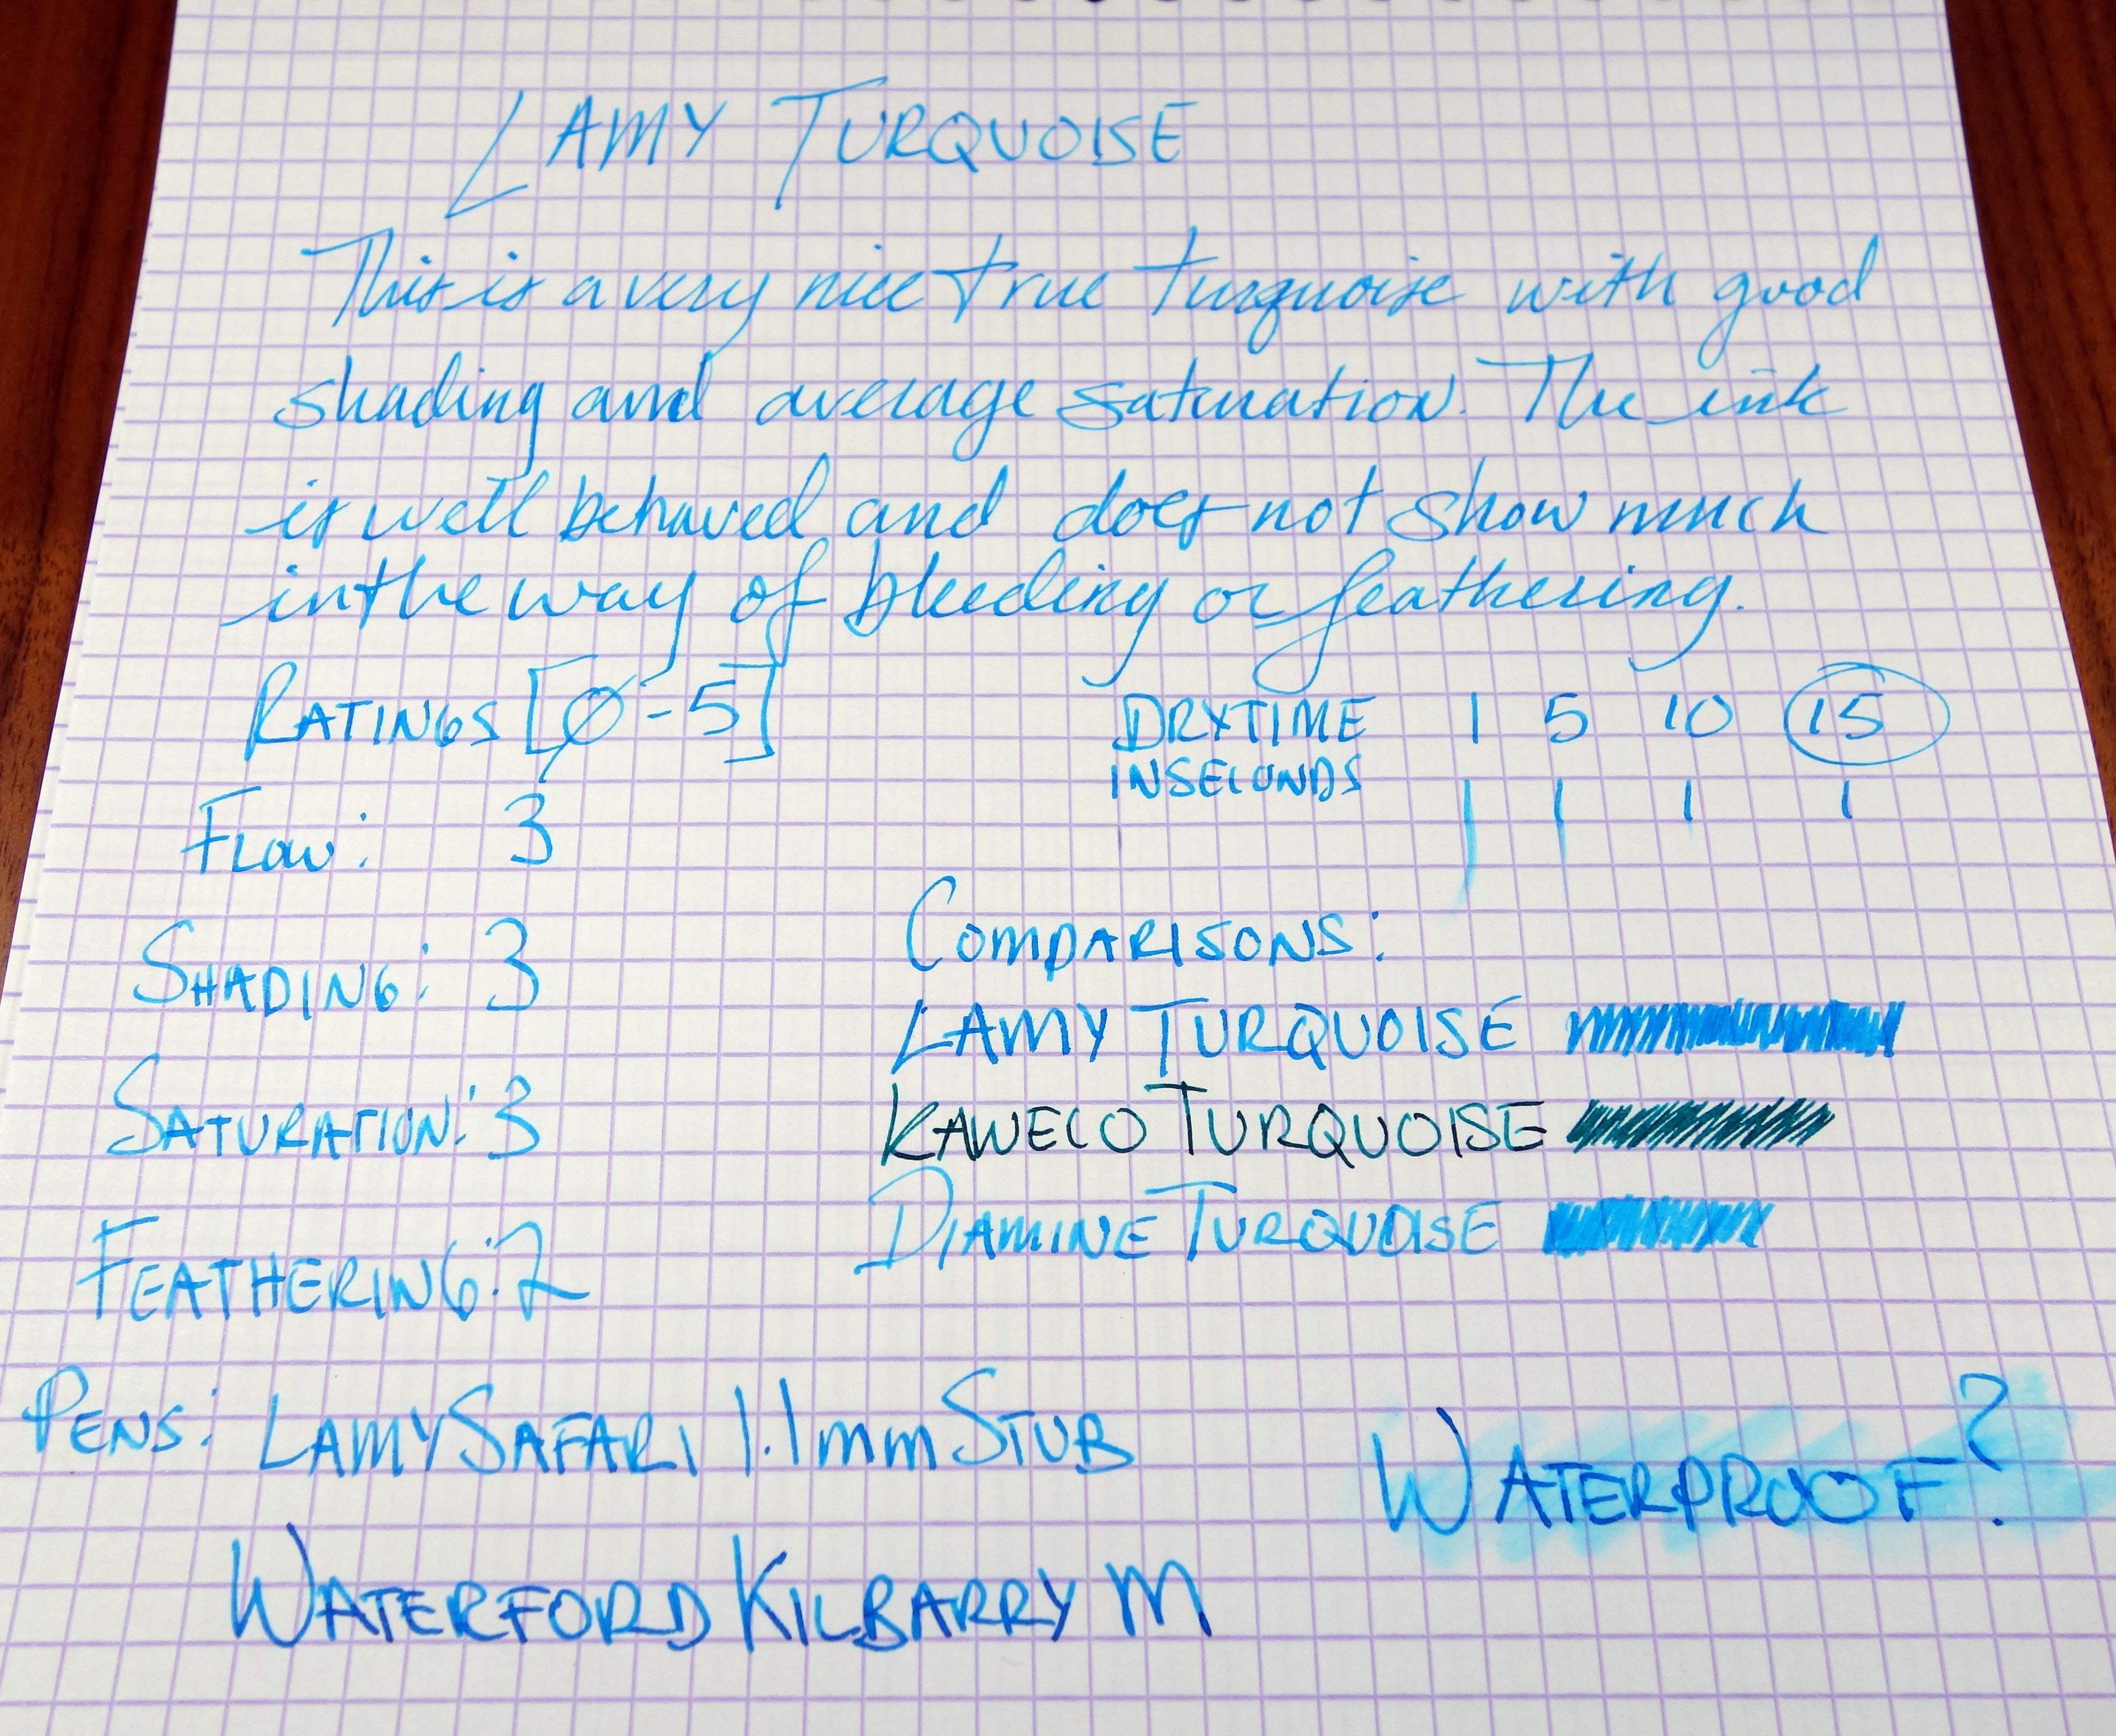 LAMY TURQUOISE
This is a very nice true turquoise with good
shading and average saturation. The ink
is well behaved and does not show much
in the way of bleeding or feathering.
RATINGS [0-5]
FLOW: 3
SHADING: 3
SATURATION: 3
FEATHERING: 2
DRYTIME 1 5 10 15
IN SECONDS
COMPARISONS:
LAMY TURQUOISE
KAWECO TURQUOISE
DIAMINE TURQUOISE
PENS: LAMY SAFARI 1.1mm STUB
WATERFORD KILBARRY M
WATERPROOF?